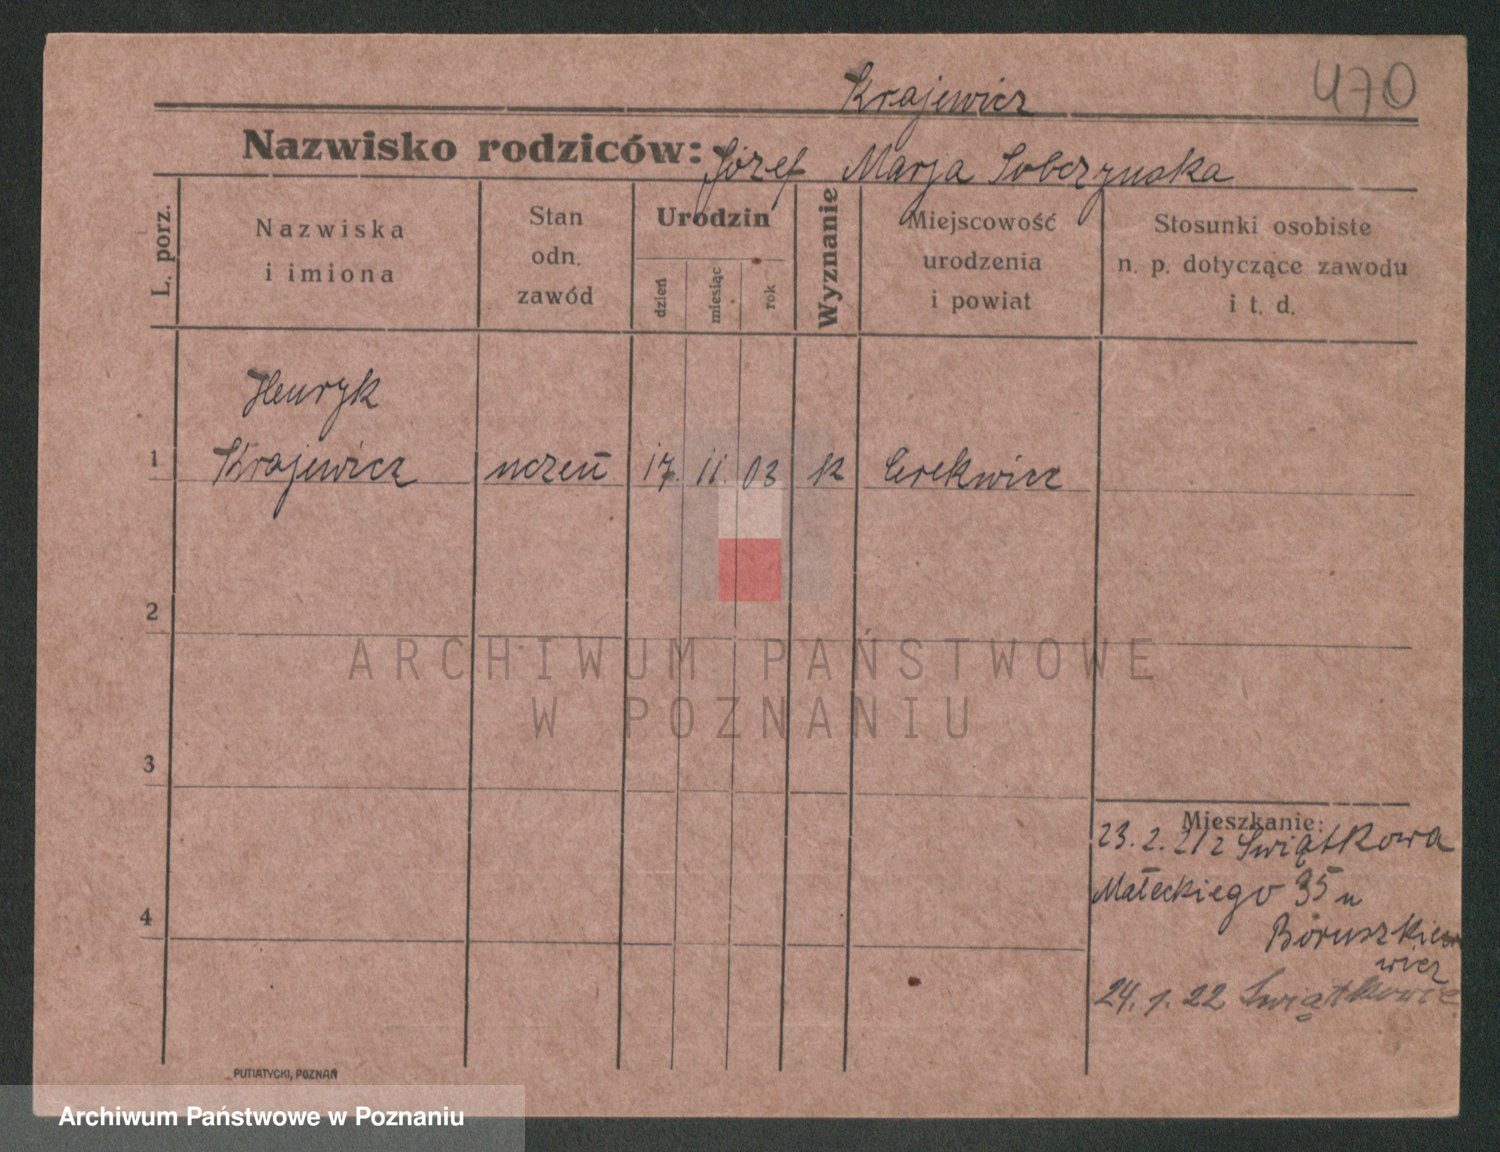 470
Krajewicz
Nazwisko rodziców: Józef Marja Sobczynska
L. porz.
Nazwiska
i imiona
Stan
odn.
zawód
Urodzin
dzień
miesiąc
rok
Wyznanie
Miejscowość
urodzenia
i powiat
Stosunki osobiste
n. p. dotyczące zawodu
i t. d.
Henryk
1 Krajewicz uczeń 17. 11. 03 k Cerekwicz
2
ARCHIWUM PAŃSTWOWE
W POZNANIU
3
Mieszkanie:
23. 2. 21 z Świątkowa
Małeckiego 35 u
Boruszkie
wicz
4
24. 1. 22 Świątkowic
PUTIATYCKI, POZNAŃ
Archiwum Państwowe w Poznaniu